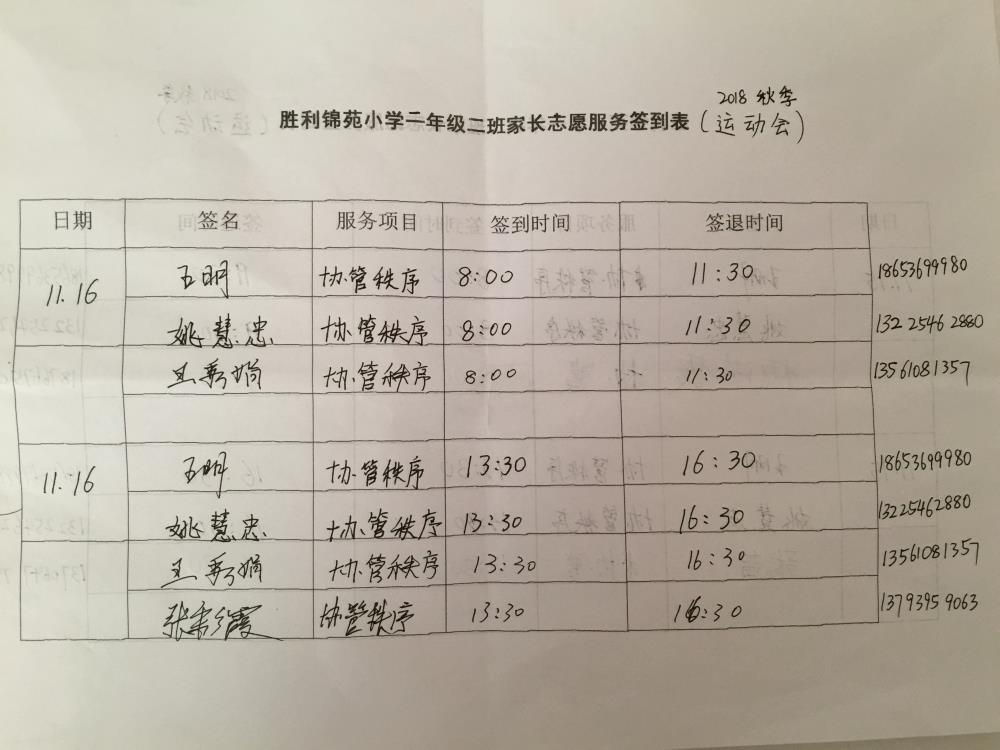 2018 秋季
胜利锦苑小学二年级二班家长志愿服务签到表 (运动会)
日期 签名 服务项目 签到时间 签退时间
11.16 王明 协管秩序 8:00 11:30 18653699980
姚慧忠 协管秩序 8:00 11:30 13225462880
王彩娟 协管秩序 8:00 11:30 13561081357
11.16 王明 协管秩序 13:30 16:30 18653699980
姚慧忠 协管秩序 13:30 16:30 13225462880
王彩娟 协管秩序 13:30 16:30 13561081357
张彩霞 协管秩序 13:30 16:30 13793959063